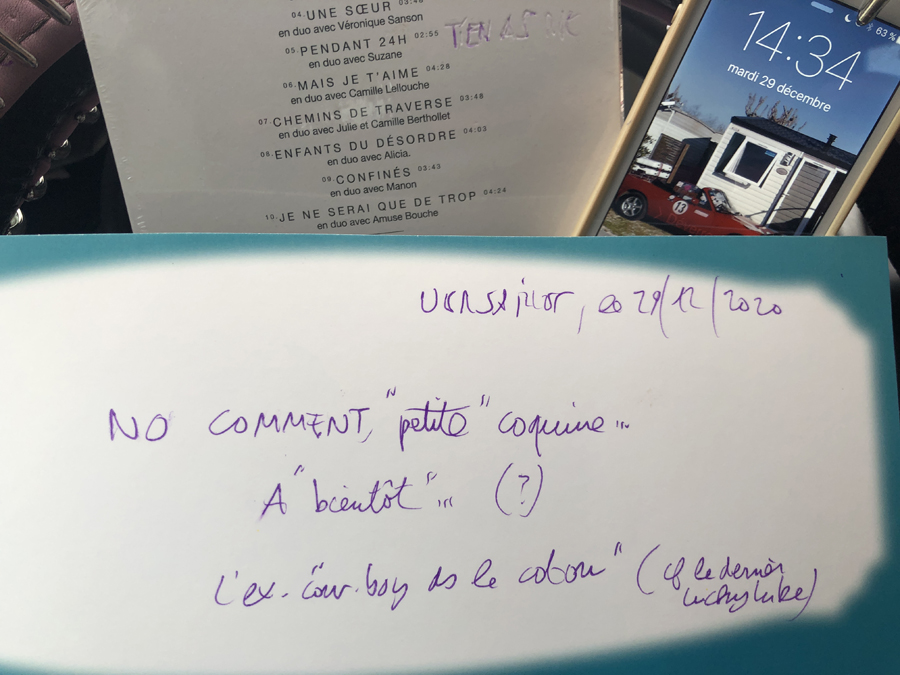 04. UNE SŒUR
en duo avec Véronique Sanson
05. PENDANT 24H 02:55
en duo avec Suzane
06. MAIS JE T'AIME 04:28
en duo avec Camille Lellouche
07. CHEMINS DE TRAVERSE 03:48
en duo avec Julie et Camille Berthollet
08. ENFANTS DU DÉSORDRE 04:03
en duo avec Alicia.
09. CONFINÉS 03:43
en duo avec Manon
10. JE NE SERAI QUE DE TROP 04:24
en duo avec Amuse Bouche
63 %
14:34
mardi 29 décembre
13
Versailles, le 29/12/2020
NO COMMENT, "petite" coquine...
A "bientôt"... (?)
L'ex. "cow-boy ds le coton" (cf le dernier
Lucky Luke)